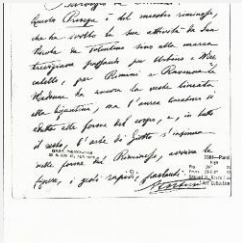 Questo Presepe è del maestro riminese,
che ha svolto la sua attività da San
Nicola da Tolentino sino alla marca
trevigiana passando per Urbino e Mer-
catello, per Rimini e Ravenna. La
Madonna ha ancora la veste lineata
alla bizantina, ma l'aurea lineatura si
adatta alle forme del corpo, e, in tutto
il resto, l'arte di Giotto s'insinua
nelle forme del Riminese, avviva le
figure, i gesti rapidi, parlanti.